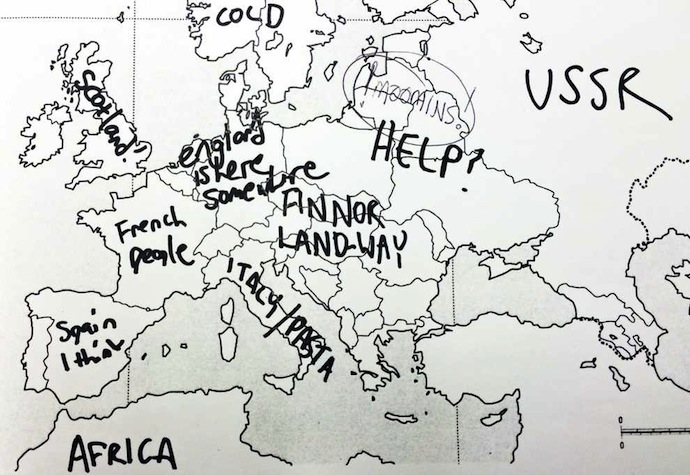 COLD
Scotland!
USSR
moomins?
HELP?
england
is here
somewhere
FINNOR
LAND-WAY
French
people
ITALY/PASTA
Spain
I think
AFRICA
0
0